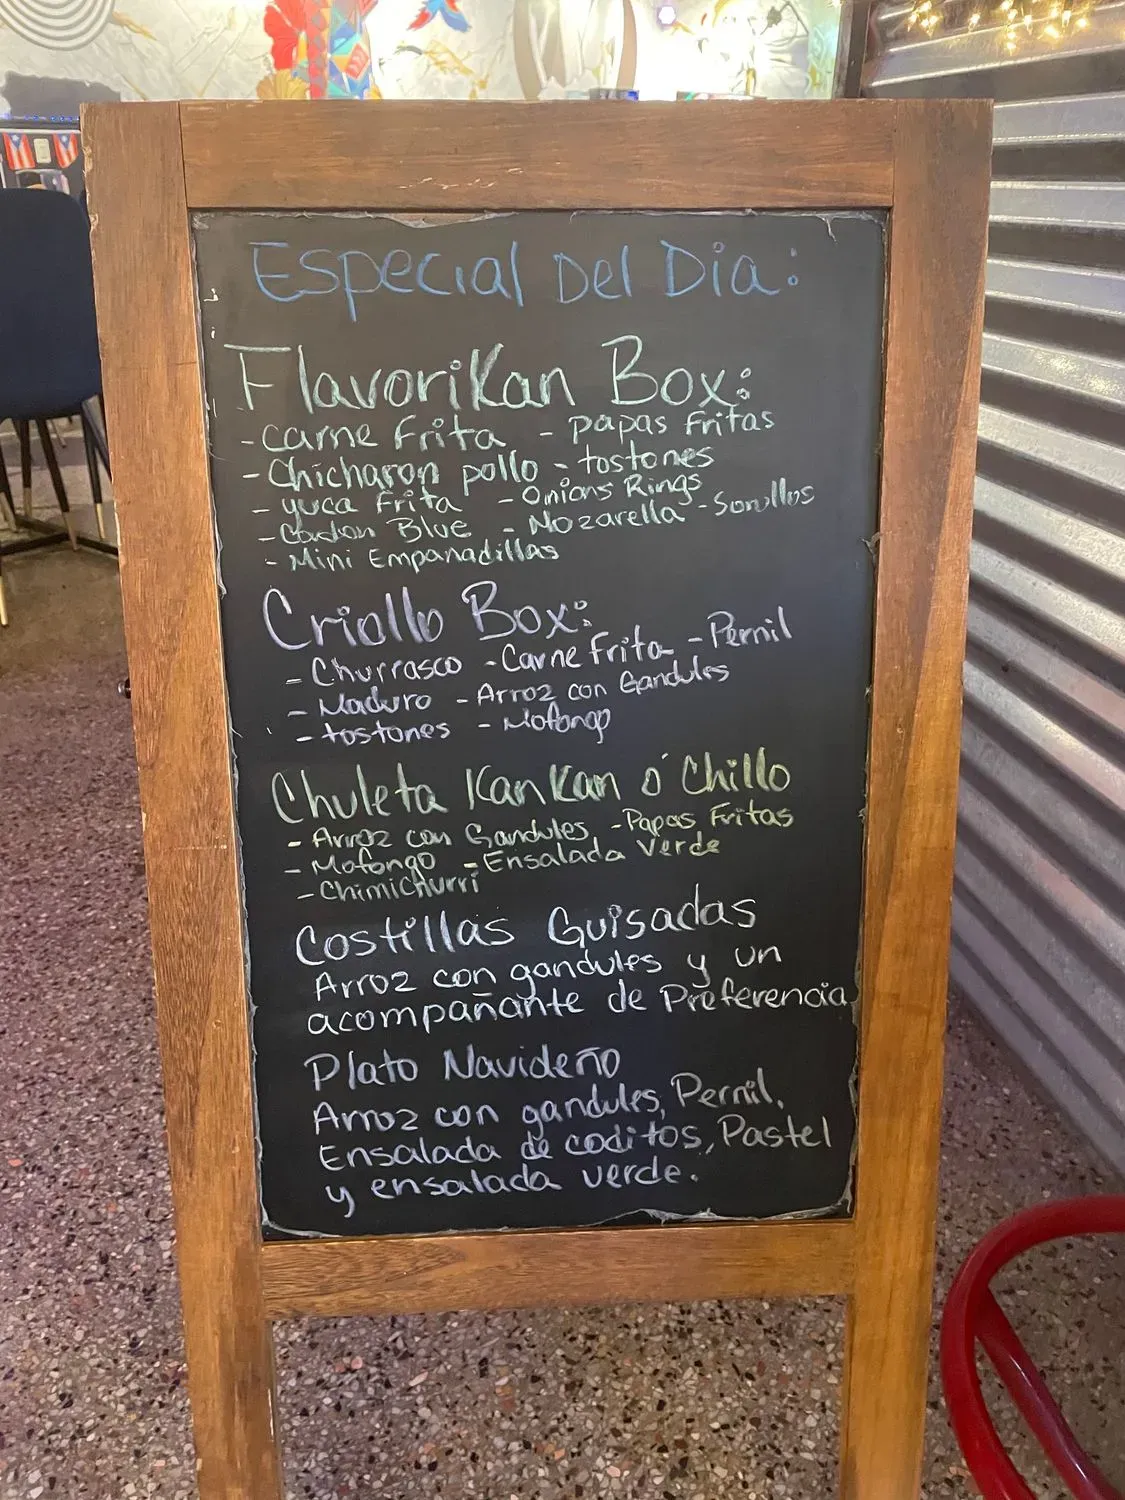 Especial Del Dia:
FlavoriKan Box:
- Carne Frita - Papas Fritas
- Chicharon pollo - tostones
- yuca Frita - Onions Rings
- Cordon Blue - Mozarella - Sorullos
- Mini Empanadillas
Criollo Box:
- Churrasco - Carne Frita - Pernil
- Maduro - Arroz con Gandules
- tostones - Mofongo
Chuleta KanKan ó Chillo
- Arroz con Gandules - Papas Fritas
- Mofongo - Ensalada Verde
- Chimichurri
Costillas Guisadas
Arroz con gandules y un
acompañante de Preferencia
Plato Navideño
Arroz con gandules, Pernil,
Ensalada de coditos, Pastel
y ensalada verde.